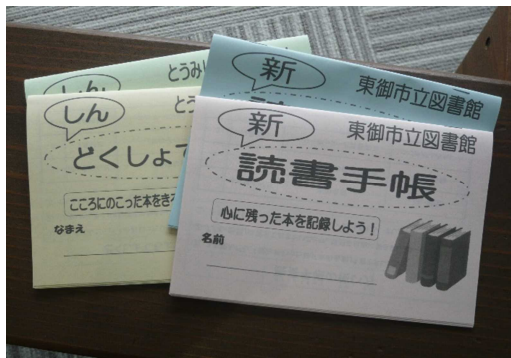 しん
とうみ
しん
とう
どくしょて
こころにのこった本をき
なまえ
新
東御市立図書館
新
東御市立図書館
読書手帳
心に残った本を記録しよう！
名前